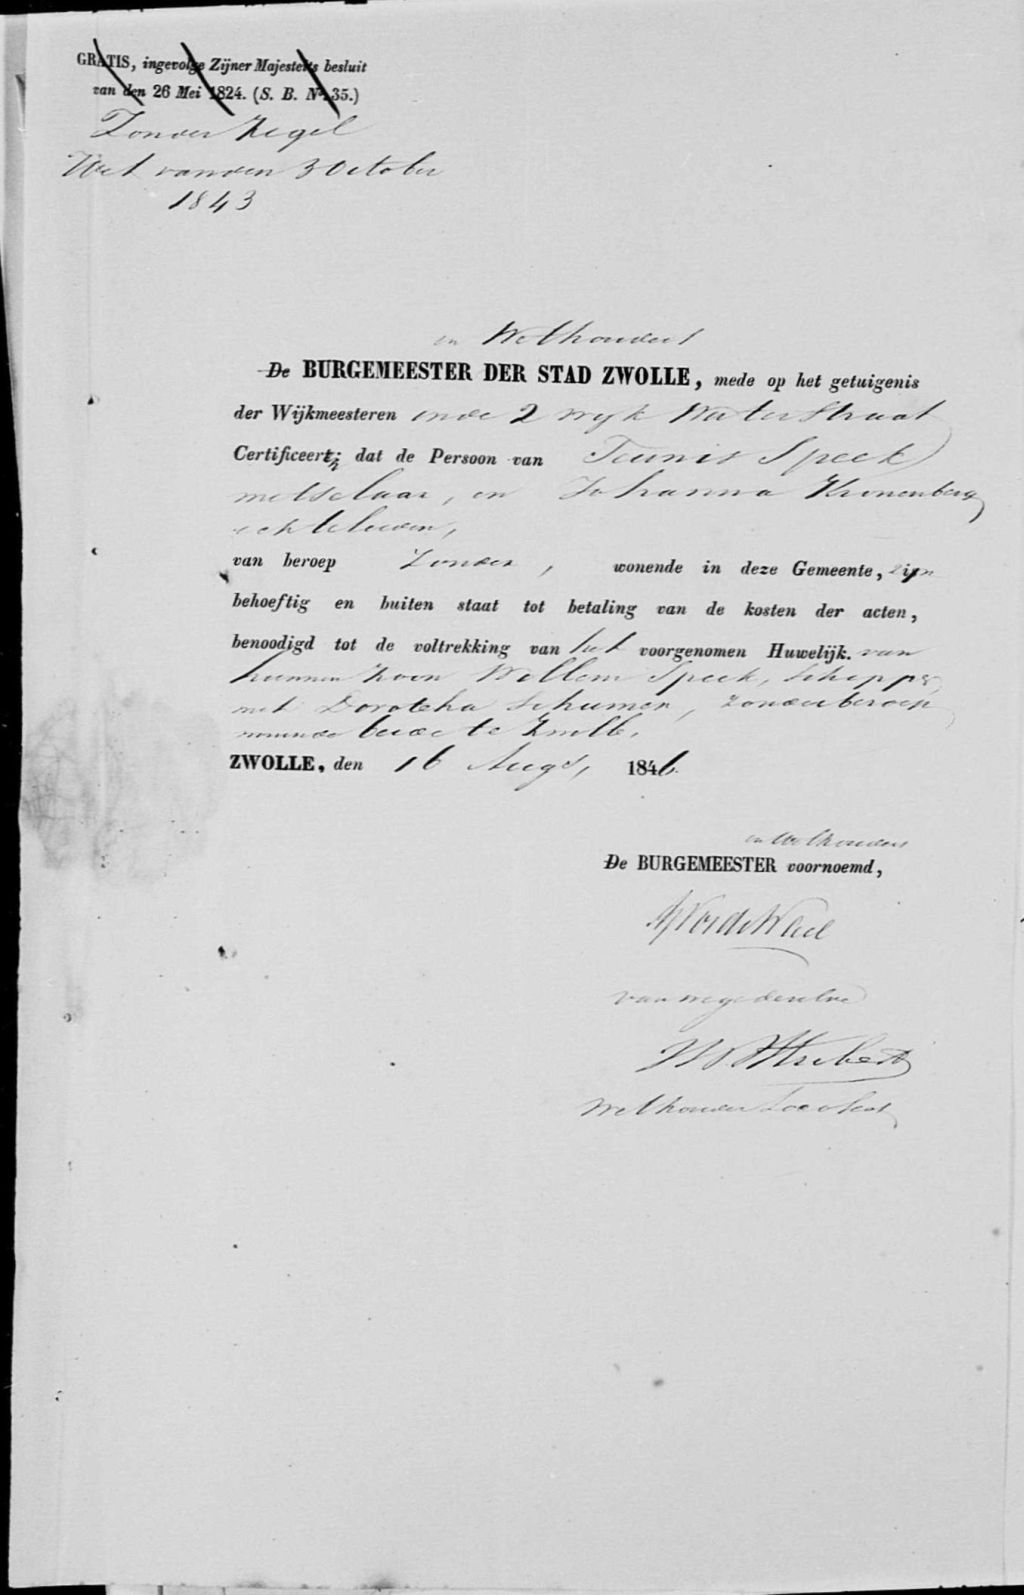 GRATIS, ingevolge Zijner Majesteits besluit
van den 26 Mei 1824. (S. B. No. 35.)
Zonder Zegel
Wet van den 3 October
1843
en Wethouders
De BURGEMEESTER DER STAD ZWOLLE, mede op het getuigenis
der Wijkmeesteren in de 2 wijk Waterstraat
Certificeert; dat de Persoon van Teunis Speek
metselaar, en Johanna Kronenberg
echtelieden,
van beroep Zonder, wonende in deze Gemeente, zijn
behoeftig en buiten staat tot betaling van de kosten der acten,
benoodigd tot de voltrekking van het voorgenomen Huwelijk. van
hunnen Zoon Willem Speek, Schipper,
met Dorotha Schumer, Zonder beroep
wonende beide te Zwolle,
ZWOLLE, den 16 Augs, 1846.
en Wethouders
De BURGEMEESTER voornoemd,
van wege dezelve
Wethouder Loco Secr